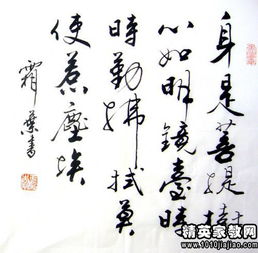 身是菩提樹
心如明鏡臺時
時勤拂拭莫
使惹塵埃
霜葉書
精英家教网
www.1010jiajiao.com